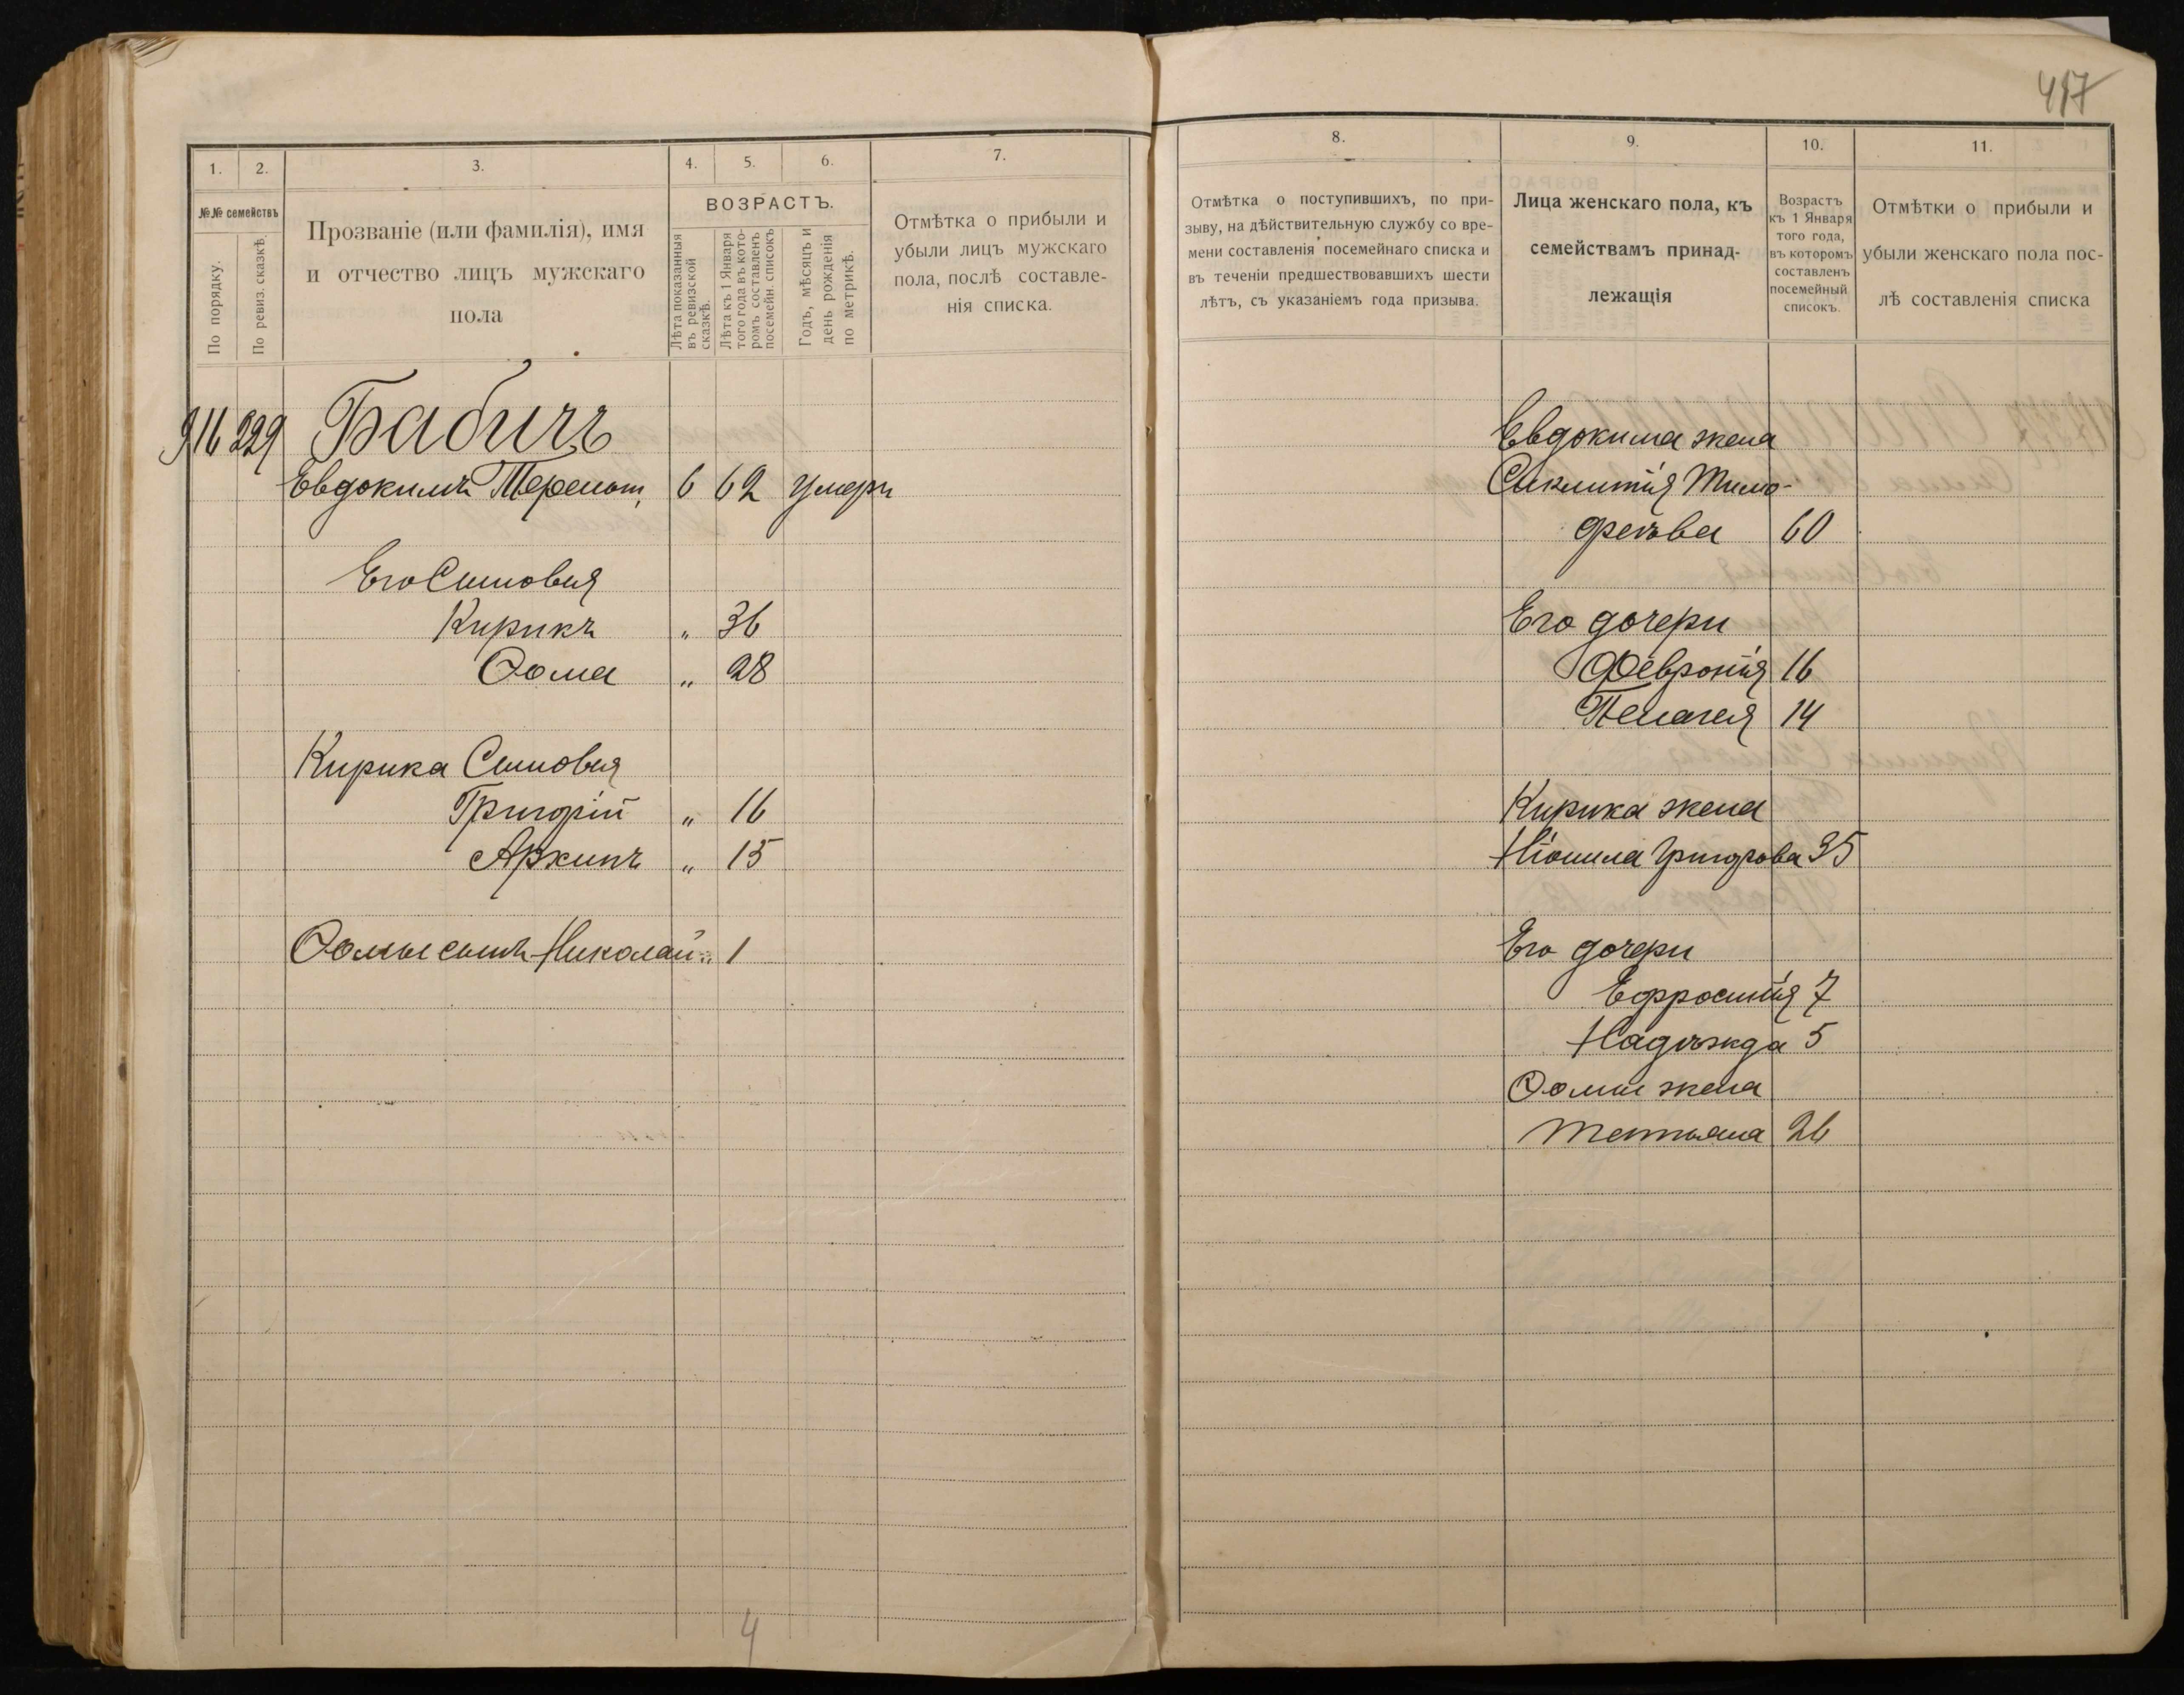 417
1. 2. 3. 4. 5. 6. 7.
№№ семействъ
По порядку.
По ревиз. сказкѣ.
Прозваніе (или фамилія), имя
и отчество лицъ мужскаго
пола
ВОЗРАСТЪ.
Лѣта показанныя
въ ревизской
сказкѣ.
Лѣта къ 1 Января
того года въ кото-
ромъ составленъ
посемейн. списокъ
Годъ, мѣсяцъ и
день рожденія
по метрикѣ.
Отмѣтка о прибыли и
убыли лицъ мужскаго
пола, послѣ составле-
нія списка.
916 229 Бабичъ
Евдокимъ Терент. 6 62 умеръ
Его Сыновья
Кирикъ „ 36
Ѳома „ 28
Кирика Сыновья
Григорій „ 16
Архипъ „ 15
Ѳомы сынъ Николай „ 1
4
8. 9. 10. 11.
Отмѣтка о поступившихъ, по при-
зыву, на дѣйствительную службу со вре-
мени составленія посемейнаго списка и
въ теченіи предшествовавшихъ шести
лѣтъ, съ указаніемъ года призыва.
Лица женскаго пола, къ
семействамъ принад-
лежащія
Возрастъ
къ 1 Января
того года,
въ которомъ
составленъ
посемейный
списокъ.
Отмѣтки о прибыли и
убыли женскаго пола пос-
лѣ составленія списка
Евдокима жена
Тимо-
феева 60
Его дочери
Февронія 16
Пелагея 14
Кирика жена
Неонила Григорова 35
Его дочери
Ефросинія 7
Надѣжда 5
Ѳомы жена
Тетьяна 26